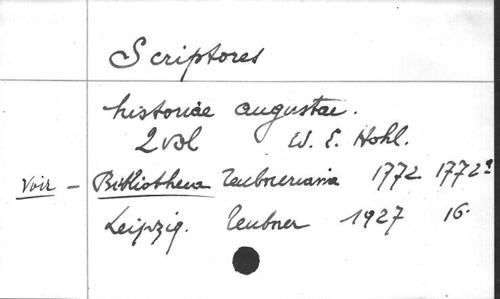 Scriptores
historiae augustae.
2 vol Ed. E. Hohl.
Voir - Bibliotheca Teubneriana 1772 1772ª
Leipzig. Teubner 1927 16.